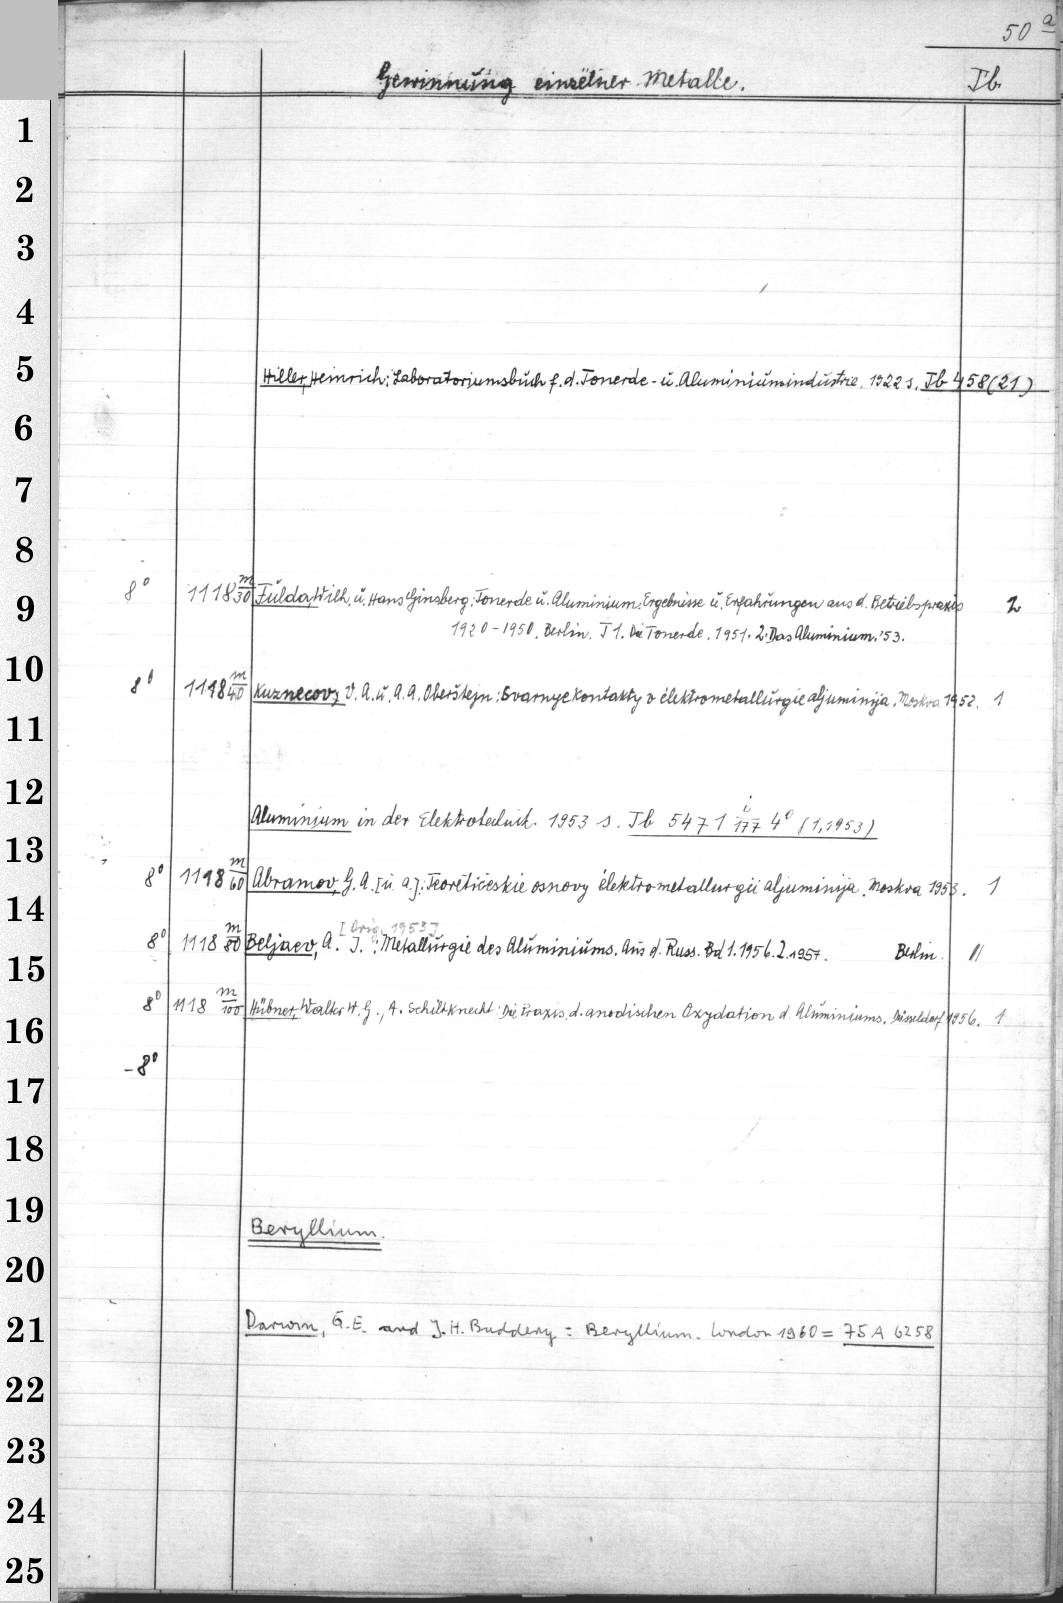 50 a
Gewinnung einzelner Metalle. Tb
1
2
3
4
5 Hiller, Heinrich: Laboratoriumsbuch f. d. Tonerde- u. Aluminiumindustrie. 1922 s. Tb 458 (21)
6
7
8
9 8° 1118 m/30 Fulda, Wilh. u. Hans Ginsberg: Tonerde u. Aluminium. Ergebnisse u. Erfahrungen aus d. Betriebspraxis 2
1920-1950. Berlin. T 1. Die Tonerde. 1951. 2. Das Aluminium. '53.
10 8° 1118 m/40 Kuznecov, V. A. u. A. A. Oberštejn: Svarnye kontakty v élektrometallurgie aljuminija. Moskva 1952. 1
11
12 Aluminium in der Elektrotechnik. 1953 s. Tb 5471 i/177 4° (1,1953)
13
8° 1118 m/60 Abramov, G. A. [u. a.]: Teoretičeskie osnovy élektrometallurgii aljuminija. Moskva 1953. 1
14
[Orig. 1953]
8° 1118 m/80 Beljaev, A. I.: Metallurgie des Aluminiums. Aus d. Russ. Bd 1. 1956. 2. 1957. Berlin. 11
15
8° 1118 m/100 Hübner, Walter W. G., A. Schiltknecht: Die Praxis d. anodischen Oxydation d. Aluminiums. Düsseldorf 1956. 1
16
-8°
17
18
19 Beryllium.
20
21 Darwin, G.E. and J.H. Buddery = Beryllium. London 1960 = 75 A 6258
22
23
24
25